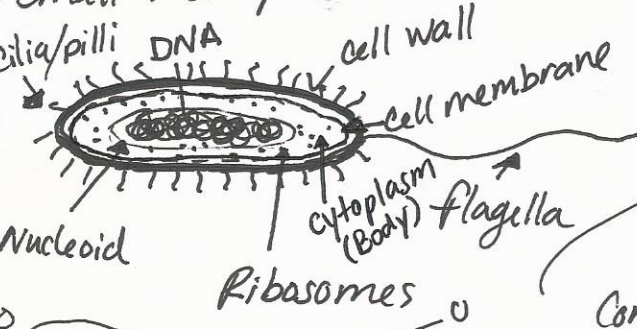 Cilia/pilli
DNA
cell wall
cell membrane
cytoplasm
(Body)
flagella
Nucleoid
Ribosomes